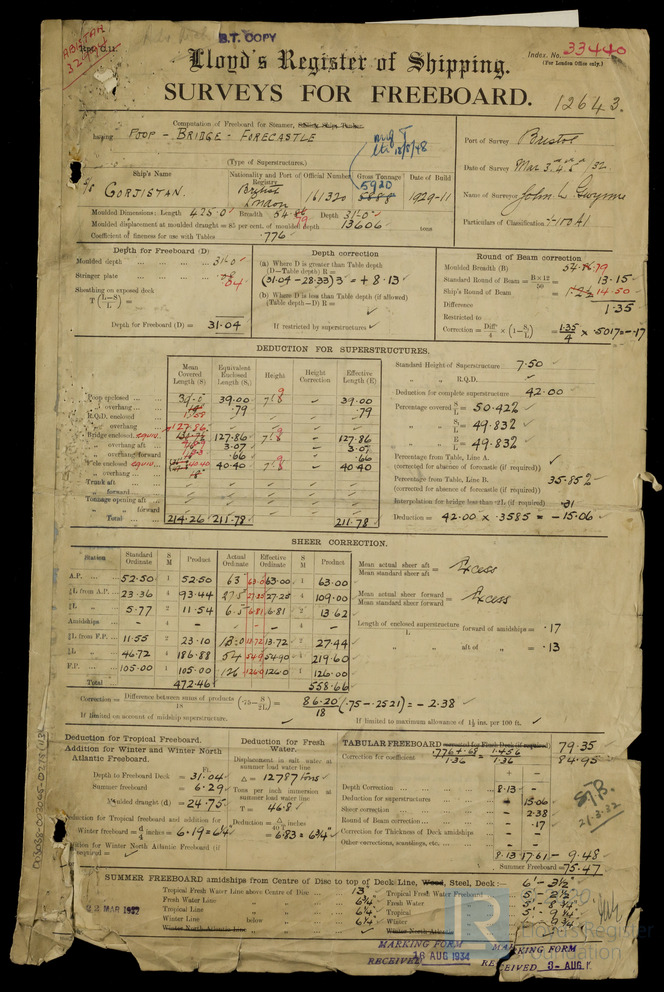 B.T. COPY
Index. No. 33440
(For London Office only.)
Lloyd's Register of Shipping.
SURVEYS FOR FREEBOARD.
12643.
Computation of Freeboard for Summer,
having POOP - BRIDGE - FORECASTLE
(Type of Superstructures.)
Port of Survey Bristol
Date of Survey Mar 3.4.6 /32
Name of Surveyor John L. Gwynne
Particulars of Classification +100A1
Ship's Name
Nationality and Port of Registry
Official Number
Gross Tonnage
Date of Build
S/S GORJISTAN.
British
London
161320
5920
5888
1929-11
Moulded Dimensions: Length 425.0 Breadth 54.79 Depth 31-0
Moulded displacement at moulded draught = 85 per cent. of moulded depth 13606 tons
Coefficient of fineness for use with Tables .776
Depth for Freeboard (D)
Moulded depth 31.0
Stringer plate .04
Sheathing on exposed deck
T (L-S / L) =
Depth for Freeboard (D) = 31.04
Depth correction
(a) Where D is greater than Table depth
(D-Table depth) R =
(31.04 - 28.33) 3 = + 8.13
(b) Where D is less than Table depth (if allowed)
(Table depth-D) R =
If restricted by superstructures
Round of Beam correction
Moulded Breadth (B) 54.79
Standard Round of Beam = B×12 / 50 = 13.15
Ship's Round of Beam = 14.50
Difference 1.35
Restricted to
Correction = Diff / 4 × (1 - S₁/L) = 1.35/4 × .5017 = -.17
DEDUCTION FOR SUPERSTRUCTURES.
Mean Covered Length (S)
Equivalent Enclosed Length (S₁)
Height
Height Correction
Effective Length (E)
Poop enclosed 39.00 7.9 39.00
" overhang .79 .79
R.Q.D. enclosed
" overhang
Bridge enclosed equiv. 127.86 127.86 127.86
" overhang aft 3.07 3.07
" overhang forward .66 .66
F'cle enclosed equiv. 40.40 40.40 40.40
" overhang
Trunk aft
" forward
Tonnage opening aft
" " forward
Total 214.26 211.78 211.78
Standard Height of Superstructure 7.50
" " R.Q.D.
Deduction for complete superstructure 42.00
Percentage covered S/L = 50.42%
" " S₁/L = 49.83%
" " E/L = 49.83%
Percentage from Table, Line A.
(corrected for absence of forecastle (if required))
Percentage from Table, Line B. 35.85%
(corrected for absence of forecastle (if required))
Interpolation for bridge less than .2L (if required) .31
Deduction = 42.00 × .3585 = -15.06
SHEER CORRECTION.
Station
Standard Ordinate
S M
Product
Actual Ordinate
Effective Ordinate
S M
Product
A.P. 52.50 1 52.50 63 63.0 63.00 1 63.00
⅙L from A.P. 23.36 4 93.44 27.5 27.25 27.25 4 109.00
⅓L " 5.77 2 11.54 6.5 6.81 6.81 2 13.62
Amidships - 4 - - 4 -
⅓L from F.P. 11.55 2 23.10 13.0 13.72 13.72 2 27.44
⅙L " 46.72 4 186.88 54 54.9 54.90 4 219.60
F.P. 105.00 1 105.00 126 126.0 126.0 1 126.00
Total 472.46 558.66
Mean actual sheer aft / Mean standard sheer aft = Excess
Mean actual sheer forward / Mean standard sheer forward = Excess
Length of enclosed superstructure / L forward of amidships = .17
" " aft of " = .13
Correction = Difference between sums of products / 18 (.75 - S/2L) = 86.20/18 (.75 - .2521) = - 2.38
If limited on account of midship superstructure.
If limited to maximum allowance of 1½ ins. per 100 ft.
Deduction for Tropical Freeboard.
Addition for Winter and Winter North Atlantic Freeboard.
Ft.
Depth to Freeboard Deck = 31.04
Summer freeboard = 6.29
Moulded draught (d) = 24.75
Deduction for Tropical freeboard and addition for
Winter freeboard = d/4 inches = 6.19 = 6¼"
Addition for Winter North Atlantic Freeboard (if required) =
Deduction for Fresh Water.
Displacement in salt water at summer load water line
Δ = 12787 tons
Tons per inch immersion at summer load water line
T = 46.8
Deduction = Δ / 40 T inches
= 6.83 = 6¾"
TABULAR FREEBOARD corrected for Flush Deck (if required) 79.35
Correction for coefficient .776 + .68 / 1.36 = 1.456 / 1.36 84.95
+ -
Depth Correction 8.13 -
Deduction for superstructures - 15.06
Sheer correction - 2.38
Round of Beam correction - .17
Correction for Thickness of Deck amidships - -
Other corrections, scantlings, etc. - -
8.13 17.61 - 9.48
Summer Freeboard = 75.47
21.3.32
SUMMER FREEBOARD amidships from Centre of Disc to top of Deck Line, Wood, Steel, Deck :- 6' - 3½"
Tropical Fresh Water Line above Centre of Disc 13" Tropical Fresh Water Freeboard 5' - 2½"
Fresh Water Line " " 6¾" Fresh Water " 5' - 8¾"
Tropical Line " " 6¼" Tropical " 5' - 9¼"
Winter Line below " 6¼" Winter " 6' - 9¾"
Winter North Atlantic Line
Winter North Atlantic
22 MAR 1932
MARKING FORM
RECEIVED 18 AUG 1934
MARKING FORM
RECEIVED 3- AUG
Lloyd's Register
Foundation